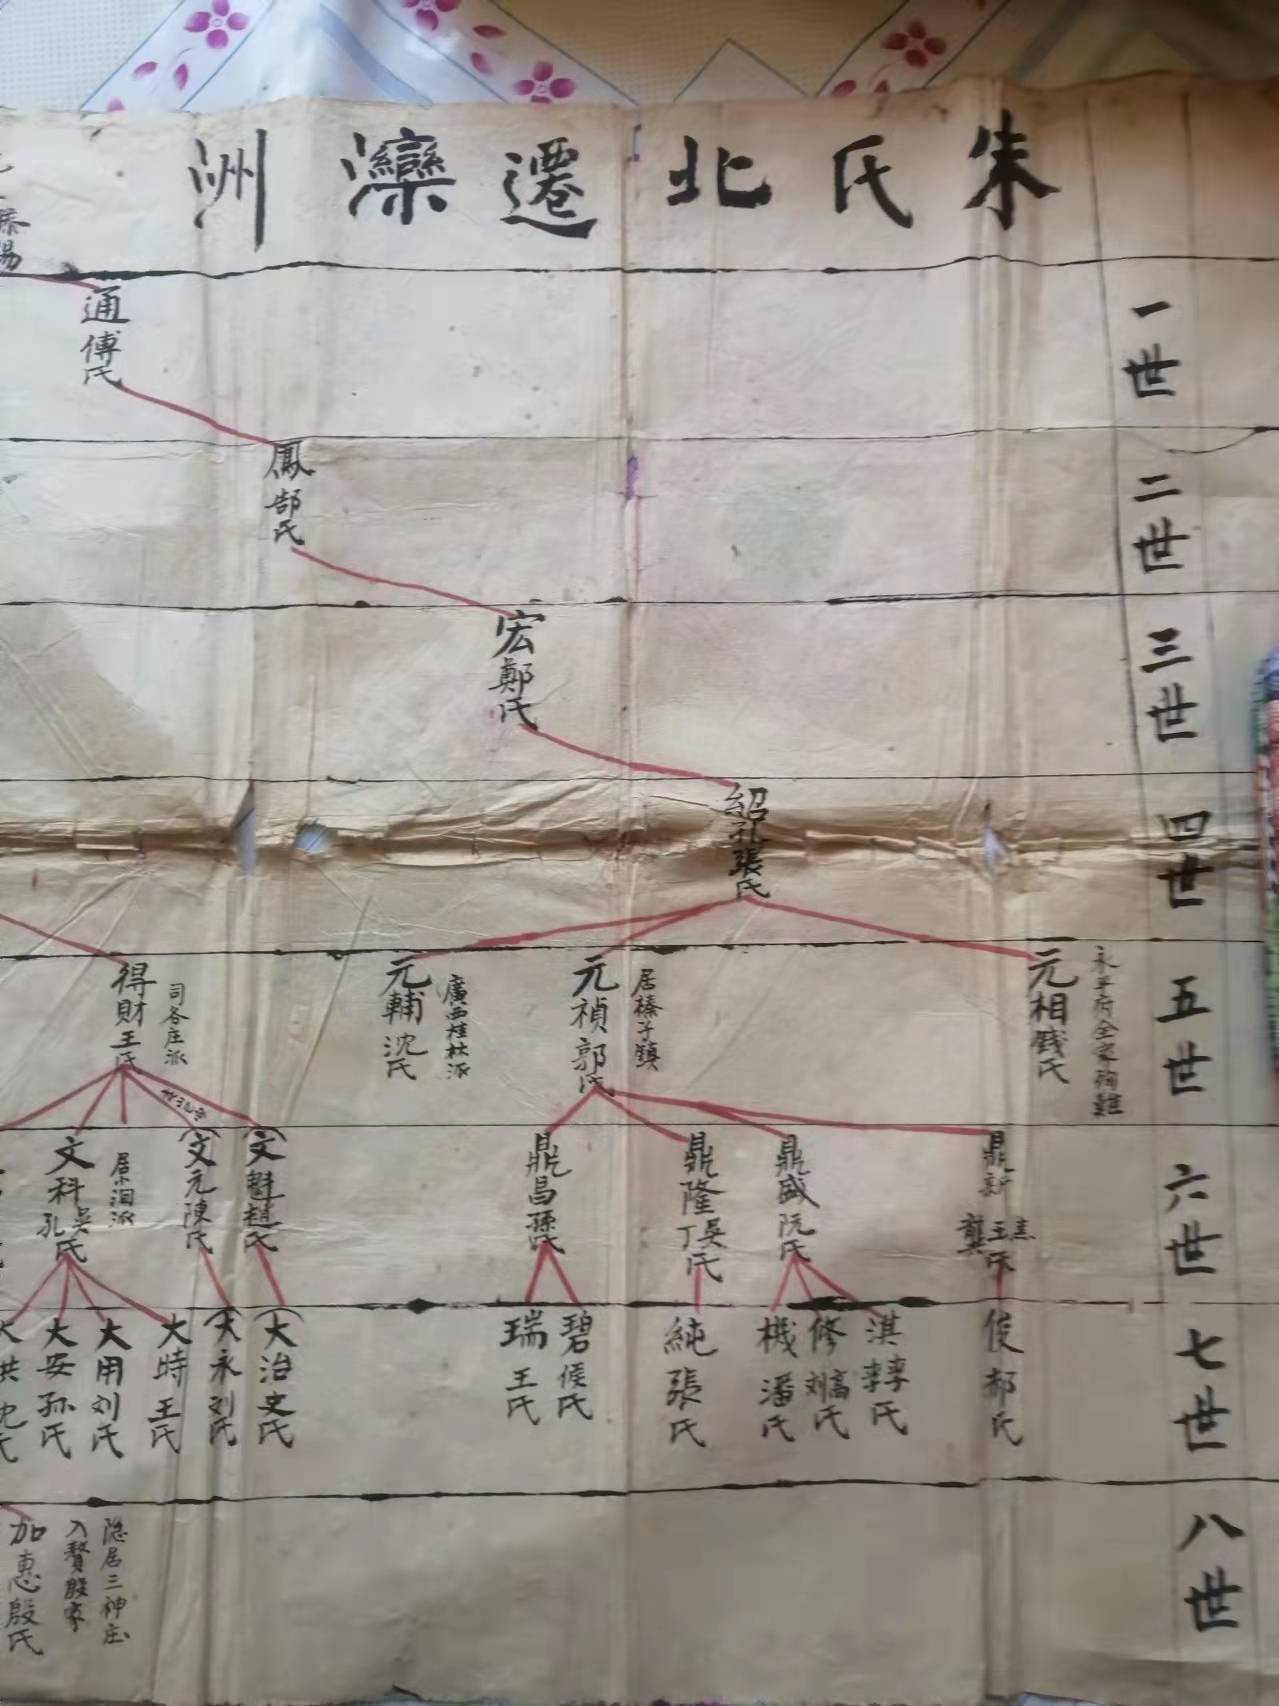 朱氏北遷灤洲
一世
通傅氏
二世
鳳郜氏
三世
宏鄭氏
四世
紹孔張氏
五世
永平府全家殉難
元相錢氏
居榛子鎮
元禎郭氏
廣西桂林派
元輔沈氏
司各庄派
得財王氏
六世
鼎新
龔王氏
鼎盛阮氏
鼎隆吳丁氏
鼎昌孫氏
文魁趙氏
文元陳氏
文科吳孔氏
七世
俊郝氏
淇李氏
修高刘氏
機潘氏
純張氏
碧侯氏
瑞王氏
大治史氏
大永刘氏
大時王氏
大用刘氏
大安孫氏
大洪沈氏
八世
隐居三神庄
入贅殷家
加惠殷氏